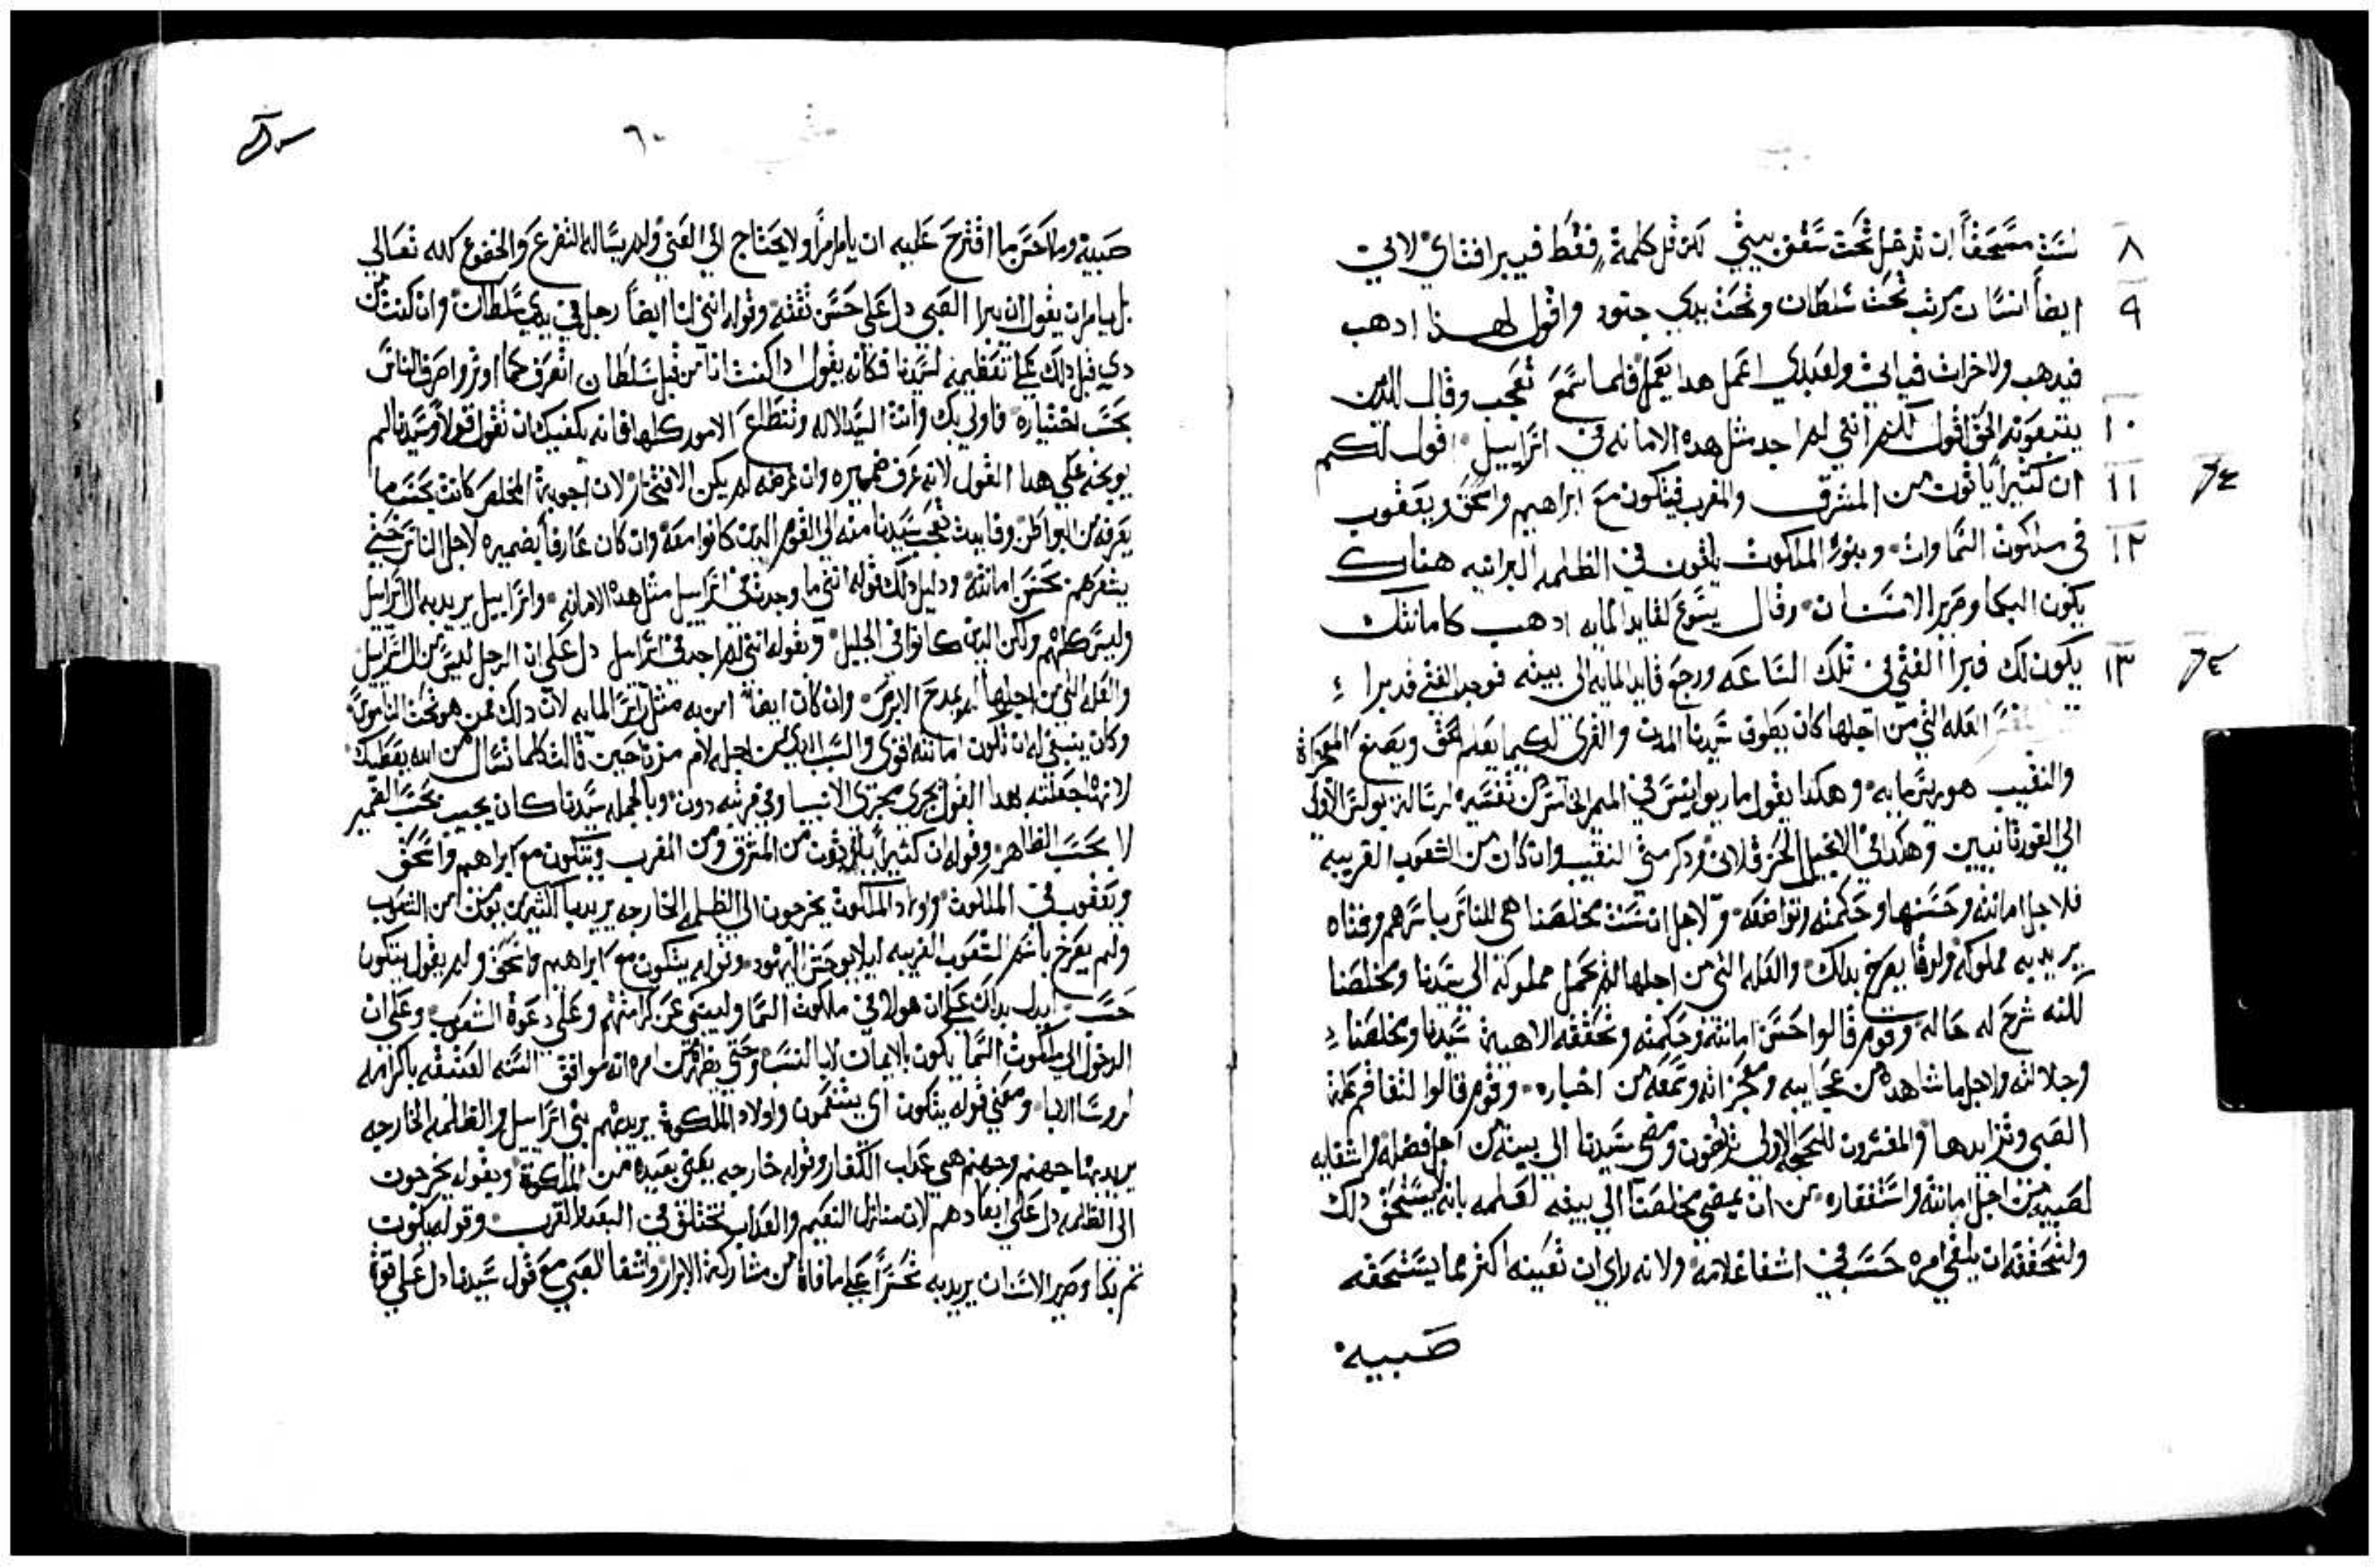 ٨ لست مستحقاً ان تدخل تحت سقف بيتي لكن قل كلمة فقط فيبرا فتاي لاني
٩ ايضاً انسان مرتب تحت سلطان وتحت يدي جنود واقول لهذا ادهب
فيدهب ولاخر ات فياتي ولعبدي اعمل هدا يعمل فلما سمع تعجب وقال للدين
١٠ يتبعونه الحق اقول لكم انني لم اجد مثل هده الامانه في اسراييل اقول لكم
١١ ان كثيراً ياتون من المشرق والمغرب فيتكون مع ابراهيم واسحق ويعقوب
١٢ في ملكوت السماوات وبنو الملكوت يلقون في الظلمه البرانيه هناك
يكون البكا وصرير الاسنان وقال يسوع لقايد المايه ادهب كامانتك
١٣ يكون لك فبرا الفتي في تلك الساعه ورجع قايد المايه الى بيته فوجد الفتي قد برا
العله التي من اجلها كان يطوف سيدنا المدن والقرى لكيما يعلم الحق ويصنع المعجزات
والنقيب هو رييس مايه وهكدا يقول ماريوانيس في الميمر من تفسيره لرسالة بولس الأولى
الى القورنثانيين وهكدا في الانجيل ودكر متي النقيب وان كان من الشعوب الغريبه
فلاجل امانته وحسنها وحكمته وتواضعه ولاجل ان سنت مخلصنا هي للناس باسرهم وفتاه
يريد به مملوكه ولوقا يصرح بدلك والعله التي من اجلها لم يحمل مملوكه الى سيدنا ومخلصنا
لكنه شرح له حاله وقوم قالوا حسن امانته وحكمته وتحققه لاهية سيدنا ومخلصنا
وجلالته ولاجل ما شاهده من عجايبه ومعجزاته وسمعه من اخباره وقوم قالوا لتفاقم علة
الصبي وتزايدها والمفسرون للحجه الاولى يرتضون ومضي سيدنا الى بيته من اجل فضله واشفايه
لصبيه من اجل امانته واستغفاره من ان يمضي مخلصنا الى بيته لعلمه بانه لا يستحق دلك
ولتحققه ان يلقي امره حسب في اشفا غلامه ولانه راى ان تعينه اكثر مما يستحقه
صبيه
٦٠
صبيه وما احسن ما اقترح عليه ان يامر امراً ولا يحتاج الي العني ولم يساله التضرع والخضوع كاله تعالي
بل يامر ان يقول ان يبرا الصبي دل علي حسن ثقته وقوله انني انا ايضاً رجل في يدي سلطان وان كنت
دي قبل دلك علي تعظيمه لسيدنا فكانه يقول ادا كنت انا من قبل سلطان اتصرف كما اوثر واصرف الناس
بحسب اختياره فاولي بك وانت السيد الاله وتتطلع الامور كلها فانه يكفيك ان تقول قولاً وسيدنا لم
يوبخه علي هدا القول لانه عرف ضميره وان غرضه لم يكن الافتخار لان اجوبة المخلص كانت بحسب ما
يعرفه من البواطن وفايدت تعجب سيدنا منه الى القوم الدين كانوا معه وان كان عارفاً بضميره لاجل الناس حتي
يشعرهم بحسن امانته ودليل دلك قوله انني ما وجدت في اسراييل مثل هده الامانه واسراييل يريد به ال اسراييل
وليس كلهم ولكن الدين كانوا في الجليل وبقوله انني لم اجد في اسراييل دل علي ان الرجل ليس من ال اسراييل
والعله التي من اجلها لم يمدح الابرص وان كان ايضاً امن به مثل رييس المايه لان داك ممن هو تحت الناموس
وكان ينبغي له ان تكون امانته اقوى والسبب الدي من اجله لام مرتا حين قالت كلما تسال من الله يعطيك
لانها جعلته بهدا القول يجري مجرى الانبيا وفي مرتبه دون وبالجمله سيدنا كان يجيب بحسب الضمير
لا بحسب الظاهر وقوله ان كثيراً ياتون من المشرق ومن المغرب ويتكون مع ابراهيم واسحق
ويعقوب في الملكوت واولاد الملكوت يخرجون الى الظلمه الخارجه يريد بالكثيرين يومن من الشعوب
ولم يصرح باسم الشعوب الغريبه ليلا يوحش اليهود وقوله يتكون مع ابراهيم واسحق ولم يقول يتكون
حسب ليدل بداك علي ان هولا في ملكوت السما ولينبي عن كرامتهم وعلي دعوة الشعوب وعلي ان
الدخول الى ملكوت السما يكون بالايمان لا بالنسب وحتي يظهر من امره انه موافق السنه العتيقه باكرامه
لروسا الابا ومعني قوله يتكون اي يتنعمون واولاد الملكوت يريد بهم بني اسراييل والظلمه الخارجه
يريد بها جهنم وجهنم هي عداب الكفار وقوله خارجه يعني بعيده من الملكوة وبقوله يخرجون
الى الظلمه دل علي ابعادهم لان منازل النعيم والعداب تختلف في البعد والقرب وقوله يكون
ثم بكا وصرير الاسنان يريد به تحسراً علي ما فاته من مشاركة الابرار واشفا الصبي مع قول سيدنا دل علي قوة